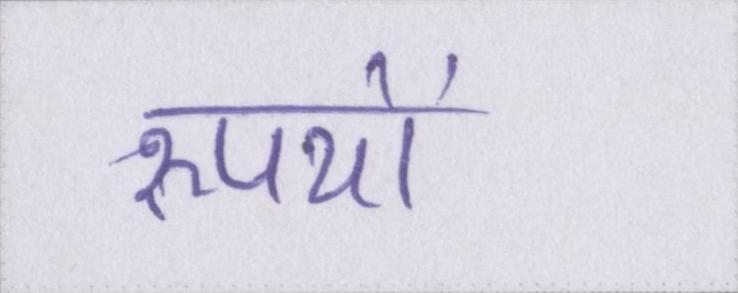 रुपयों